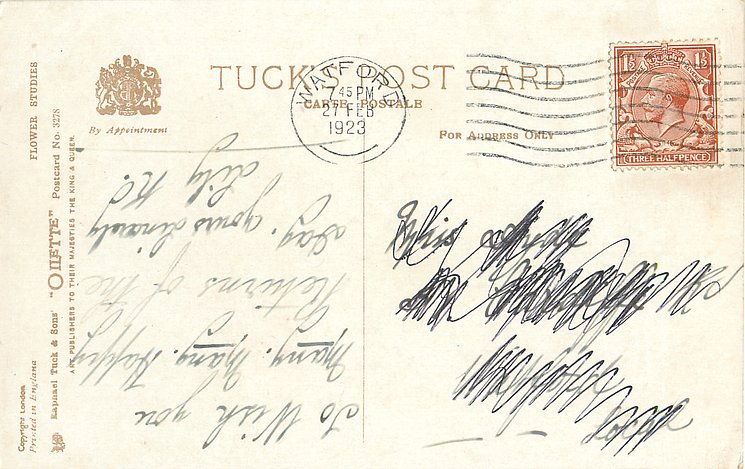 TUCK'S POST CARD
CARTE POSTALE
By Appointment
FOR ADDRESS ONLY
WATFORD
7 45 PM
27 FEB
1923
1½ 1½
THREE HALFPENCE
FLOWER STUDIES
Raphael Tuck & Sons' "OILETTE" Postcard No. 3278
ART PUBLISHERS TO THEIR MAJESTIES THE KING & QUEEN.
Copyright London
Printed in England
To Wish you
Many. Many. Happy
Returns of the
Day. yours sincerely
Lily K.
Miss